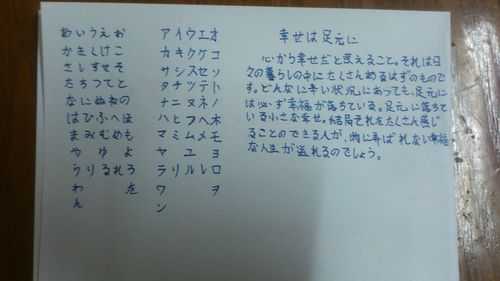 あいうえお
かきくけこ
さしすせそ
たちつてと
なにぬねの
はひふへほ
まみむめも
やゆよ
らりるれろ
わを
ん
アイウエオ
カキクケコ
サシスセソ
タチツテト
ナニヌネノ
ハヒフヘホ
マミムメモ
ヤユヨ
ラリルレロ
ワヲ
ン
幸せは足元に
心から幸せだと思えること。それは日
々の暮らしの中にたくさんあるはずのもので
す。どんなに辛い状況にあっても、足元に
は必ず幸福が落ちている。足元に落ちて
いる小さな幸せ。結局それをたくさん感じ
ることのできる人が、何に
れない幸福
な人生が送れるのでしょう。